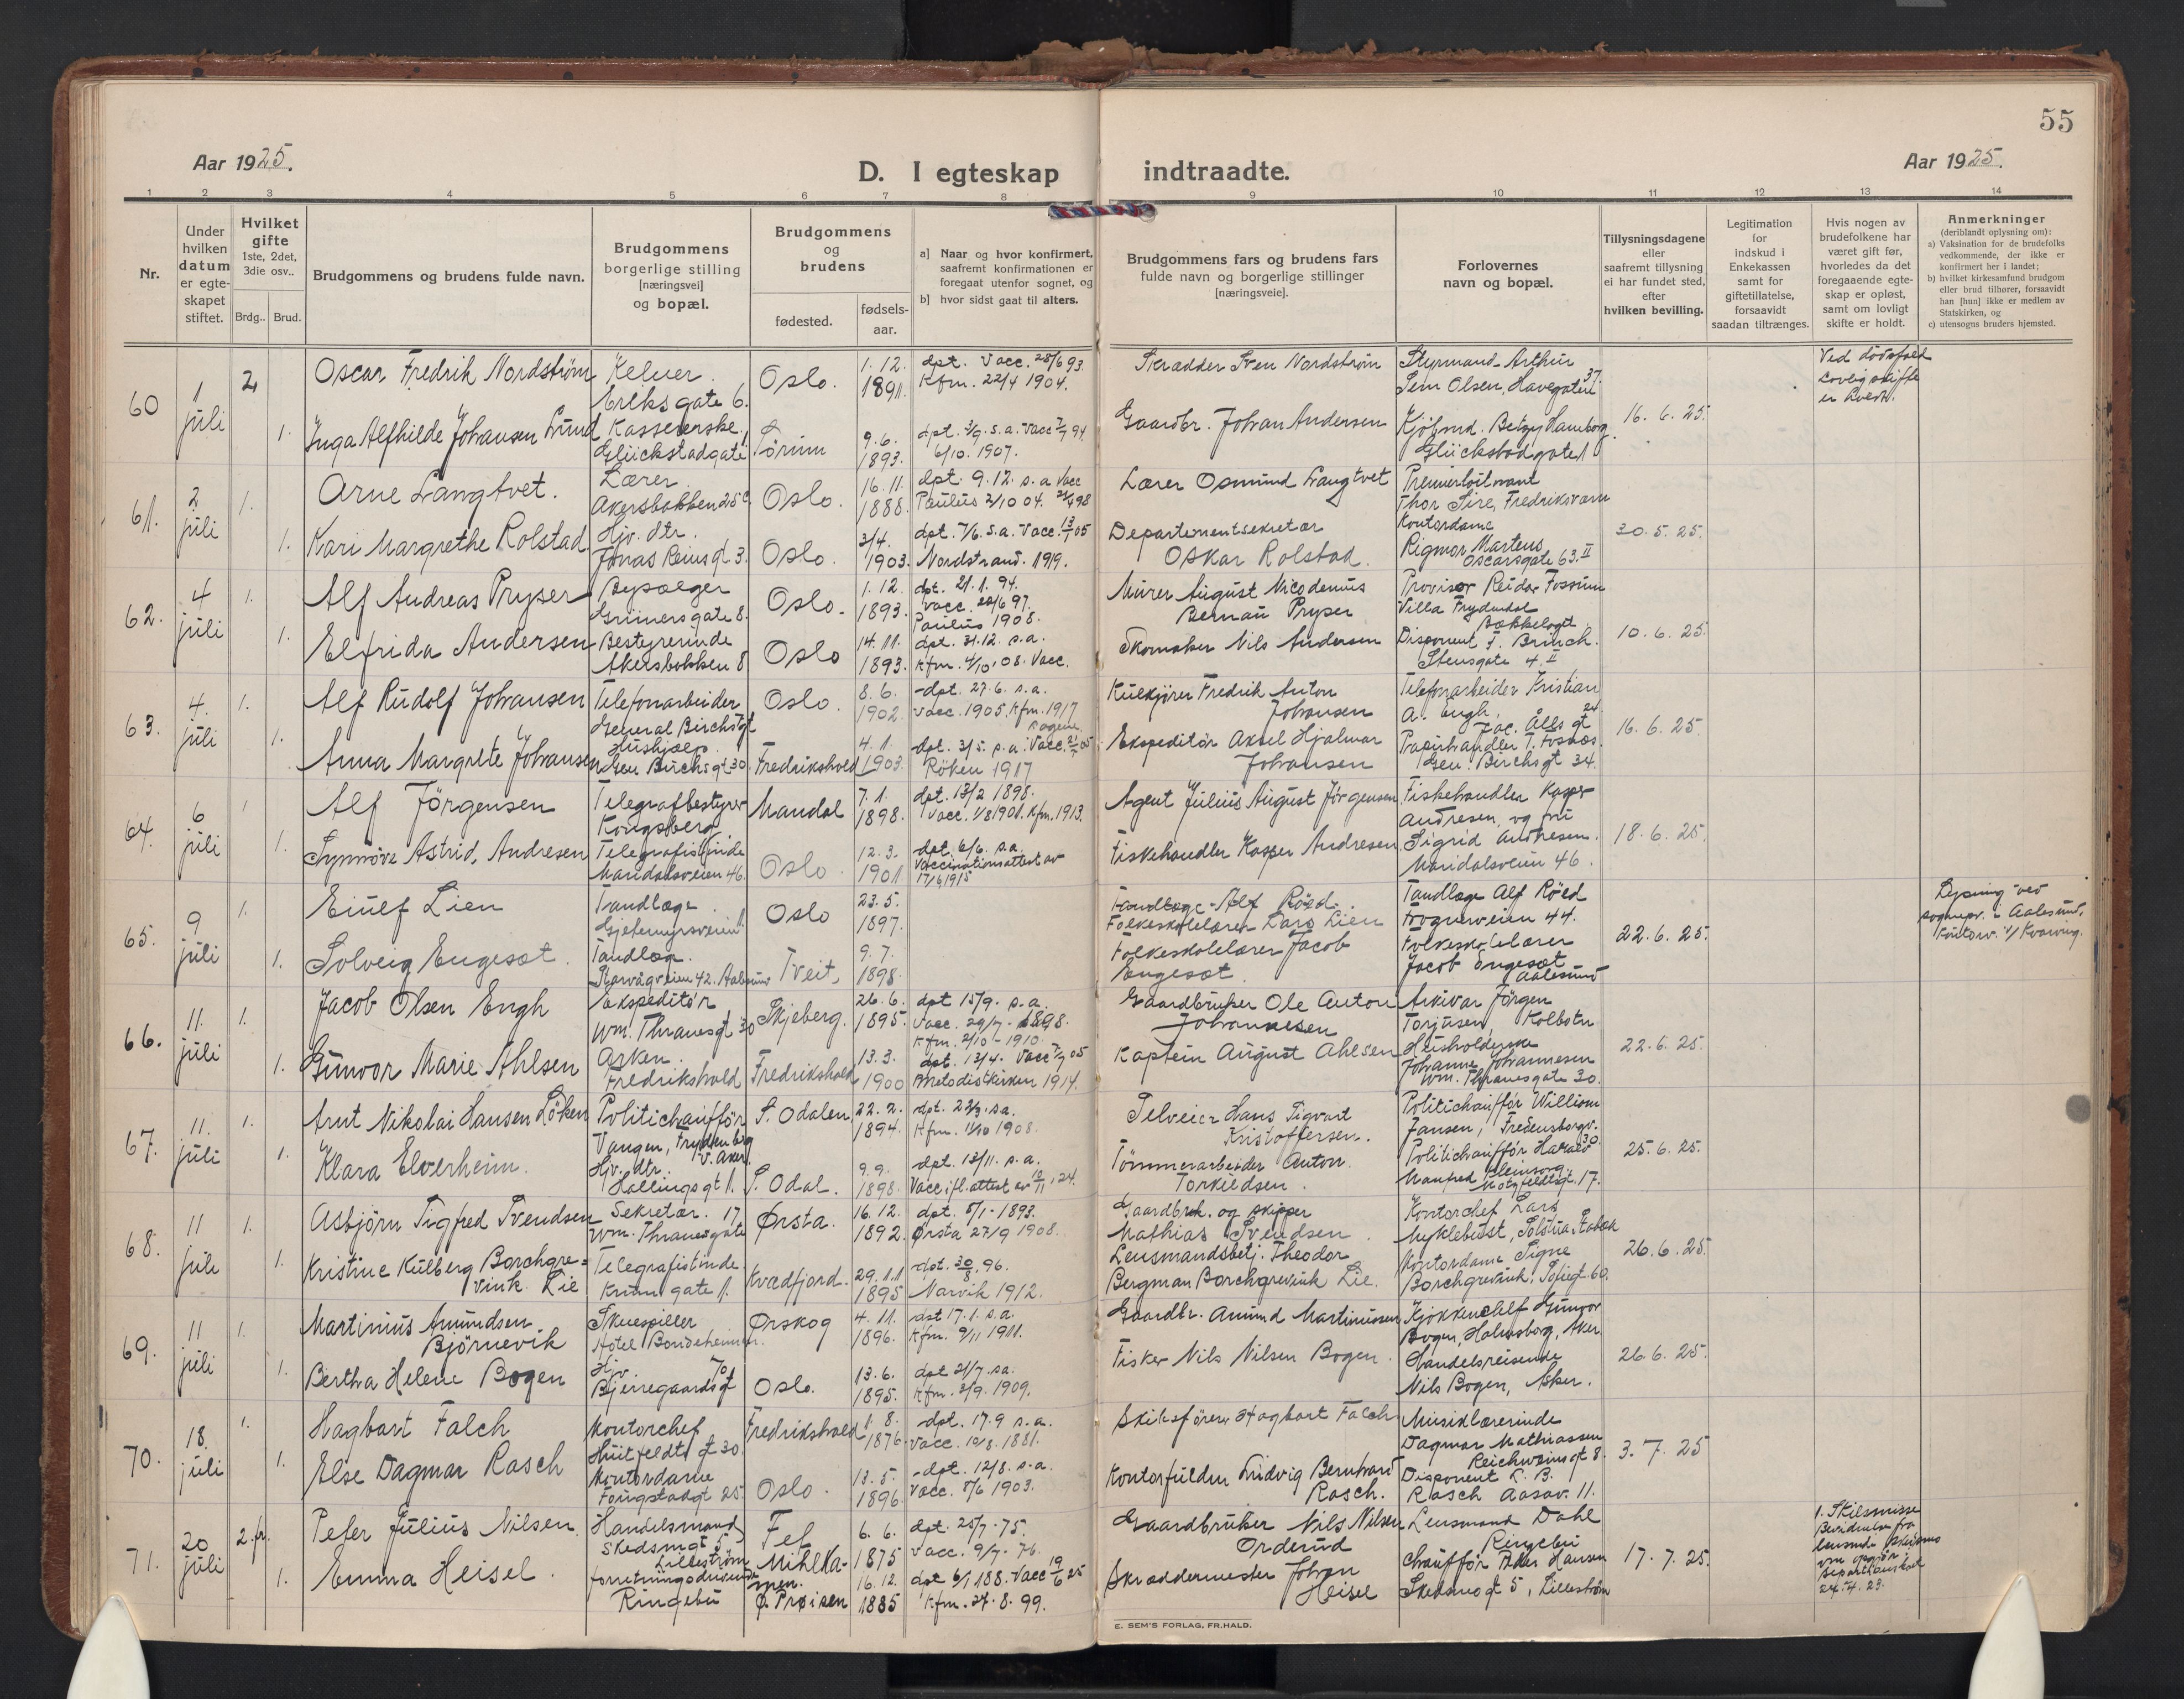 55
Aar 1925.
D. I egteskap indtraadte.
Aar 1925.
1 2 3 4 5 6 7 8 9 10 11 12 13 14
Nr.
Under hvilken datum er egteskapet stiftet.
Hvilket gifte 1ste, 2det, 3die osv..
Brdg.. Brud.
Brudgommens og brudens fulde navn.
Brudgommens borgerlige stilling [næringsvei] og bopæl.
Brudgommens og brudens
fødested.
fødselsaar.
a] Naar og hvor konfirmert, saafremt konfirmationen er foregaat utenfor sognet, og
b] hvor sidst gaat til alters.
Brudgommens fars og brudens fars fulde navn og borgerlige stillinger [næringsveie].
Forlovernes navn og bopæl.
Tillysningsdagene eller saafremt tillysning ei har fundet sted, efter hvilken bevilling.
Legitimation for indskud i Enkekassen samt for giftetillatelse, forsaavidt saadan tiltrænges.
Hvis nogen av brudefolkene har været gift før, hvorledes da det foregaaende egteskap er opløst, samt om lovligt skifte er holdt.
Anmerkninger (deriblandt oplysning om):
a) Vaksination for de brudefolks vedkommende, der ikke er konfirmert her i landet;
b) hvilket kirkesamfund brudgom eller brud tilhører, forsaavidt han [hun] ikke er medlem av Statskirken, og
c) utensogns bruders hjemsted.
60 1 juli 2
Oscar Fredrik Nordstrøm
Kelner. Eriks gate 6.
Oslo. 1. 12. 1891.
dpt. Vacc. 28/6 93. Kfm. 22/4 1904.
Skrædder Sven Nordstrøm
Styrmand Arthur Sem Olsen, Havegaten 37.
16. 6. 25.
Ved dødsfald Lovlig skifte er
1. Inga Alfhilde Johansen Lund
Kassererske. Glückstadgate 1
9. 6. 1893.
6/10. 1907.
Gaardbr. Johan Andersen
Kjøbmd. Betzy Hamborg Glückstadgate 1
61. 2 juli 1.
Arne Langtvet.
Lærer. Akersbakken 25 c
Oslo. 16. 11. 1888.
dpt. 9. 12. s. a Vacc Paulus 2/10 04.
Lærer Osmund Langtvet
Premierløitnant Thor Sire, Fredriksværn
30. 5. 25.
1. Kari Margrethe Rolstad
Hjv. dtr. Jonas Reinsgt 3.
Oslo. 3/4. 1903.
dpt. 7/6. s. a. Vacc. 13/7 05 Nordstrand. 1919.
Departementsekretær Oskar Rolstad.
Kontordame Rigmor Martens Oscarsgate 63. II
62. 4 juli 1.
Alf Andreas Pryser
Bypælger Grünersgate 8.
Oslo. 1. 12. 1893.
dpt. 21. 1. 94. Vacc. 28/6 97. Paulus 1908.
Murer August Nicodemus Bernau Pryser
Provisor Reidar Fossum Villa Frydendal Bækkelaget.
10. 6. 25.
1. Elfrida Andersen
Bestyrerinde Akersbakken 8
Oslo 14. 11. 1893.
dpt. 31. 12. s. a. Kfm. 4/10. 08. Vacc.
Skomaker Nils Andersen
Disponent F. Brinch. Stensgate 4. II
63. 4. juli 1.
Alf Rudolf Johansen
Telefonarbeider General Birchsgt
Oslo. 8. 6. 1902.
dpt. 27. 6. s. a. Vacc. 1905. Kfm. 1917
Kulkjører Fredrik Anton Johansen
Telefonarbeider Kristian A. Engh, Jac. Ålls gt 24
16. 6. 25.
1. Anna Margrete Johansen
Hushjælp. Gen Birchsgt 30.
Fredrikshald 4. 11. 1903.
dpt. 3/5. s. a. Vacc. Røken 1917
Ekspeditør Aksel Hjalmar Johansen
Papirhandler T. Fosnæs. Gen. Birchsgt 34.
64. 6 juli 1
Alf Jørgensen
Telegrafbestyrer Kongsberg
Mandal 7. 1. 1898.
dpt. 13/2 1898. Vacc. 1/8 1901. Kfm. 1913.
Agent Julius August Jørgensen
Fiskehandler Kasper Andresen, og fru Sigrid Andresen. Maridalsveien 46.
18. 6. 25.
1. Synnøve Astrid, Andresen
Telegrafistinde Maridalsveien 46.
Oslo 12. 3. 1901
dpt. 6/6. s. a. Vaccinationsattest av 17/6 1915
Fiskehandler Kasper Andresen
65. 9 juli 1.
Eiulf Lien
Tandlæge. Gjetemyrsveien 11.
Oslo 23. 5. 1897.
Tandlæge Alf Røed. Folkeskolelærer Lars Lien
Tandlæge Alf Røed Frognerveien 44.
22. 6. 25.
Lysning ved sognepr. i Aalesund.
1. Solveig Engeset.
Tandlæge. Skarvågveien 42. Aalesund
Tveit, 9. 7. 1898.
Folkeskolelærer Jacob Engeset.
Folkeskolelærer Jacob Engeset Aalesund
66. 11. juli 1.
Jacob Olsen Engh
Ekspeditør Wm. Thranesgt 30
Skjeberg. 26. 6. 1895.
dpt 15/9. s. a. Vacc. 29/7 - 1898. Kfm. 2/10 - 1910.
Gaardbruker Ole Anton Johannesen
Arkivar Jørgen Torjusen, Kolbotn
22. 6. 25.
1. Gunvor Marie Ahlsen
Asken. Fredrikshald
Fredrikshald 13. 3. 1900
dpt. 13/4. Vacc 7/9 05 Metodistkirken 1914.
Kaptein August Ahlsen
Husholderske Johanne Johannesen Wm. Thranesgate 30.
67. 11. juli 1.
Arnt Nikolai Hansen Løken
Politichauffør Vangen, Frydenberg v. Aker.
S. Odalen 22. 2. 1894.
dpt. 22/3. s a. Kfm. 11/10 1908.
Selveier Hans Sigvart Kristoffersen.
Politichauffør William Jansen, Fredensborgv. 30.
25. 6. 25.
1. Klara Elverheim.
Hjv. dtr. Hallingsgt 1.
S. Odal. 9. 9. 1898.
dpt. 13/11. s. a. Vacc ifl. attest av 10/11, 24.
Tømmerarbeider Anton. Torkildsen.
Politichauffør Harald Manfred Motzfeldtsgt. 17.
68. 11 juli 1.
Asbjørn Sigfred Svendsen
Sekretær. Wm. Thranesgate 17
Ørsta. 16. 12. 1892.
dpt. 8/1 - 1893. Ørsta 27/9 1908.
Gaardbrk. og skipper Mathias Svendsen.
Kontorchef Lars Myklebust, Solstua, Stabæk
26. 6. 25.
1. Kristine Kulberg Borchgrevink Lie
Telegrafistinde. Krumgate 1.
Kvædfjord. 29. 11 1895
dpt. 30/8. 96. Narvik 1912.
Lensmandsbetj. Theodor Bergman Borchgrevink Lie.
Kontordame Signe Borchgrevink. Sofiegt. 60.
69. 11 juli 1.
Martinius Amundsen Bjørnevik
Skuespiller Hotel Bondeheimen.
Ørskog 4. 11. 1896.
dpt 17. 1. s. a. Kfm. 9/11 1911.
Gaardbr. Amund Martinussen
Kjøkkenchef Gunvor Bogen, Holmsborg, Aker
26. 6. 25.
1. Bertha Helene Bogen
Hjv. Bjerregaardsgt 70
Oslo. 13. 6. 1895.
dpt 21/7. s a. Kfm. 3/9. 1909.
Fisker Nils Nilsen Bogen.
Handelsreisende Nils Bogen, Asker.
70. 18. juli 1.
Hagbart Falch
Kontorchef Huitfeldts gt 30.
Fredrikshald 1. 8. 1876
dpt. 17. 9 s. a. Vacc. 10/8. 1881.
Skibsfører Hagbart Falch
Musiklærerinde Dagmar Mathiassen Reichweinsgt 8.
3. 7. 25
1. Else Dagmar Rasch
Kontordame Fougstadgt 25
Oslo. 13. 5. 1896.
dpt. 12/8. s. a. Vacc. 8/6 1903.
Kontorfuldm Ludvig Bernhard Rasch.
Disponent L. B. Rasch Aasav. 11.
71. 20 juli 2. fr.
Peter Julius Nilsen.
Handelsmand Skedsmgt 5 Lillestrøm
Fet 6. 6. 1875
dpt. 25/7. 75. Vacc. 9/7. 76.
Gaardbruker Nils Nilsen Orderud
Lensmand Dahl Ringebu
17. 7. 25.
1. Skilsmisse
24. 4. 23.
1. Emma Heisel.
forretningsdrivende Ringebu
Ø. Prøisen 16. 12. 1885
Kfm. 27. 8. 99.
Skræddermester Johan Heisel
Chauffør Hansen Skedsmogt 5, Lillestrøm
E. SEM'S FORLAG, FR.HALD.